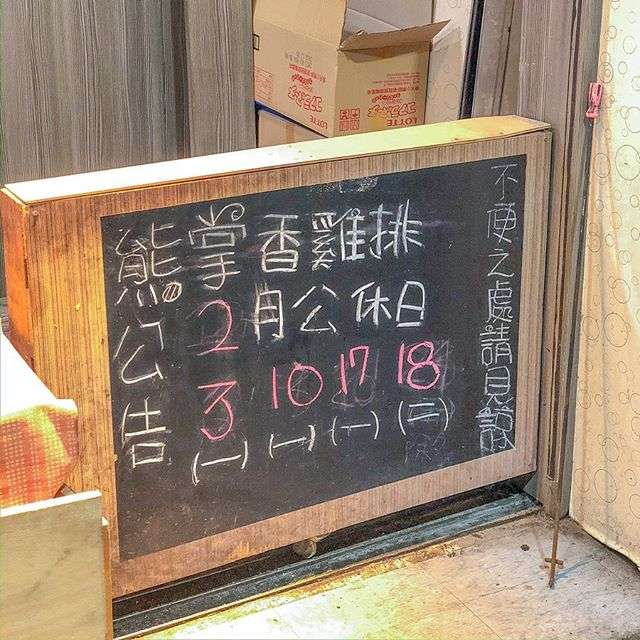 熊掌香雞排
公告
2月公休日
3 10 17 18
(一) (一) (一) (二)
不便之處請見諒
LOTTE
LOTTE